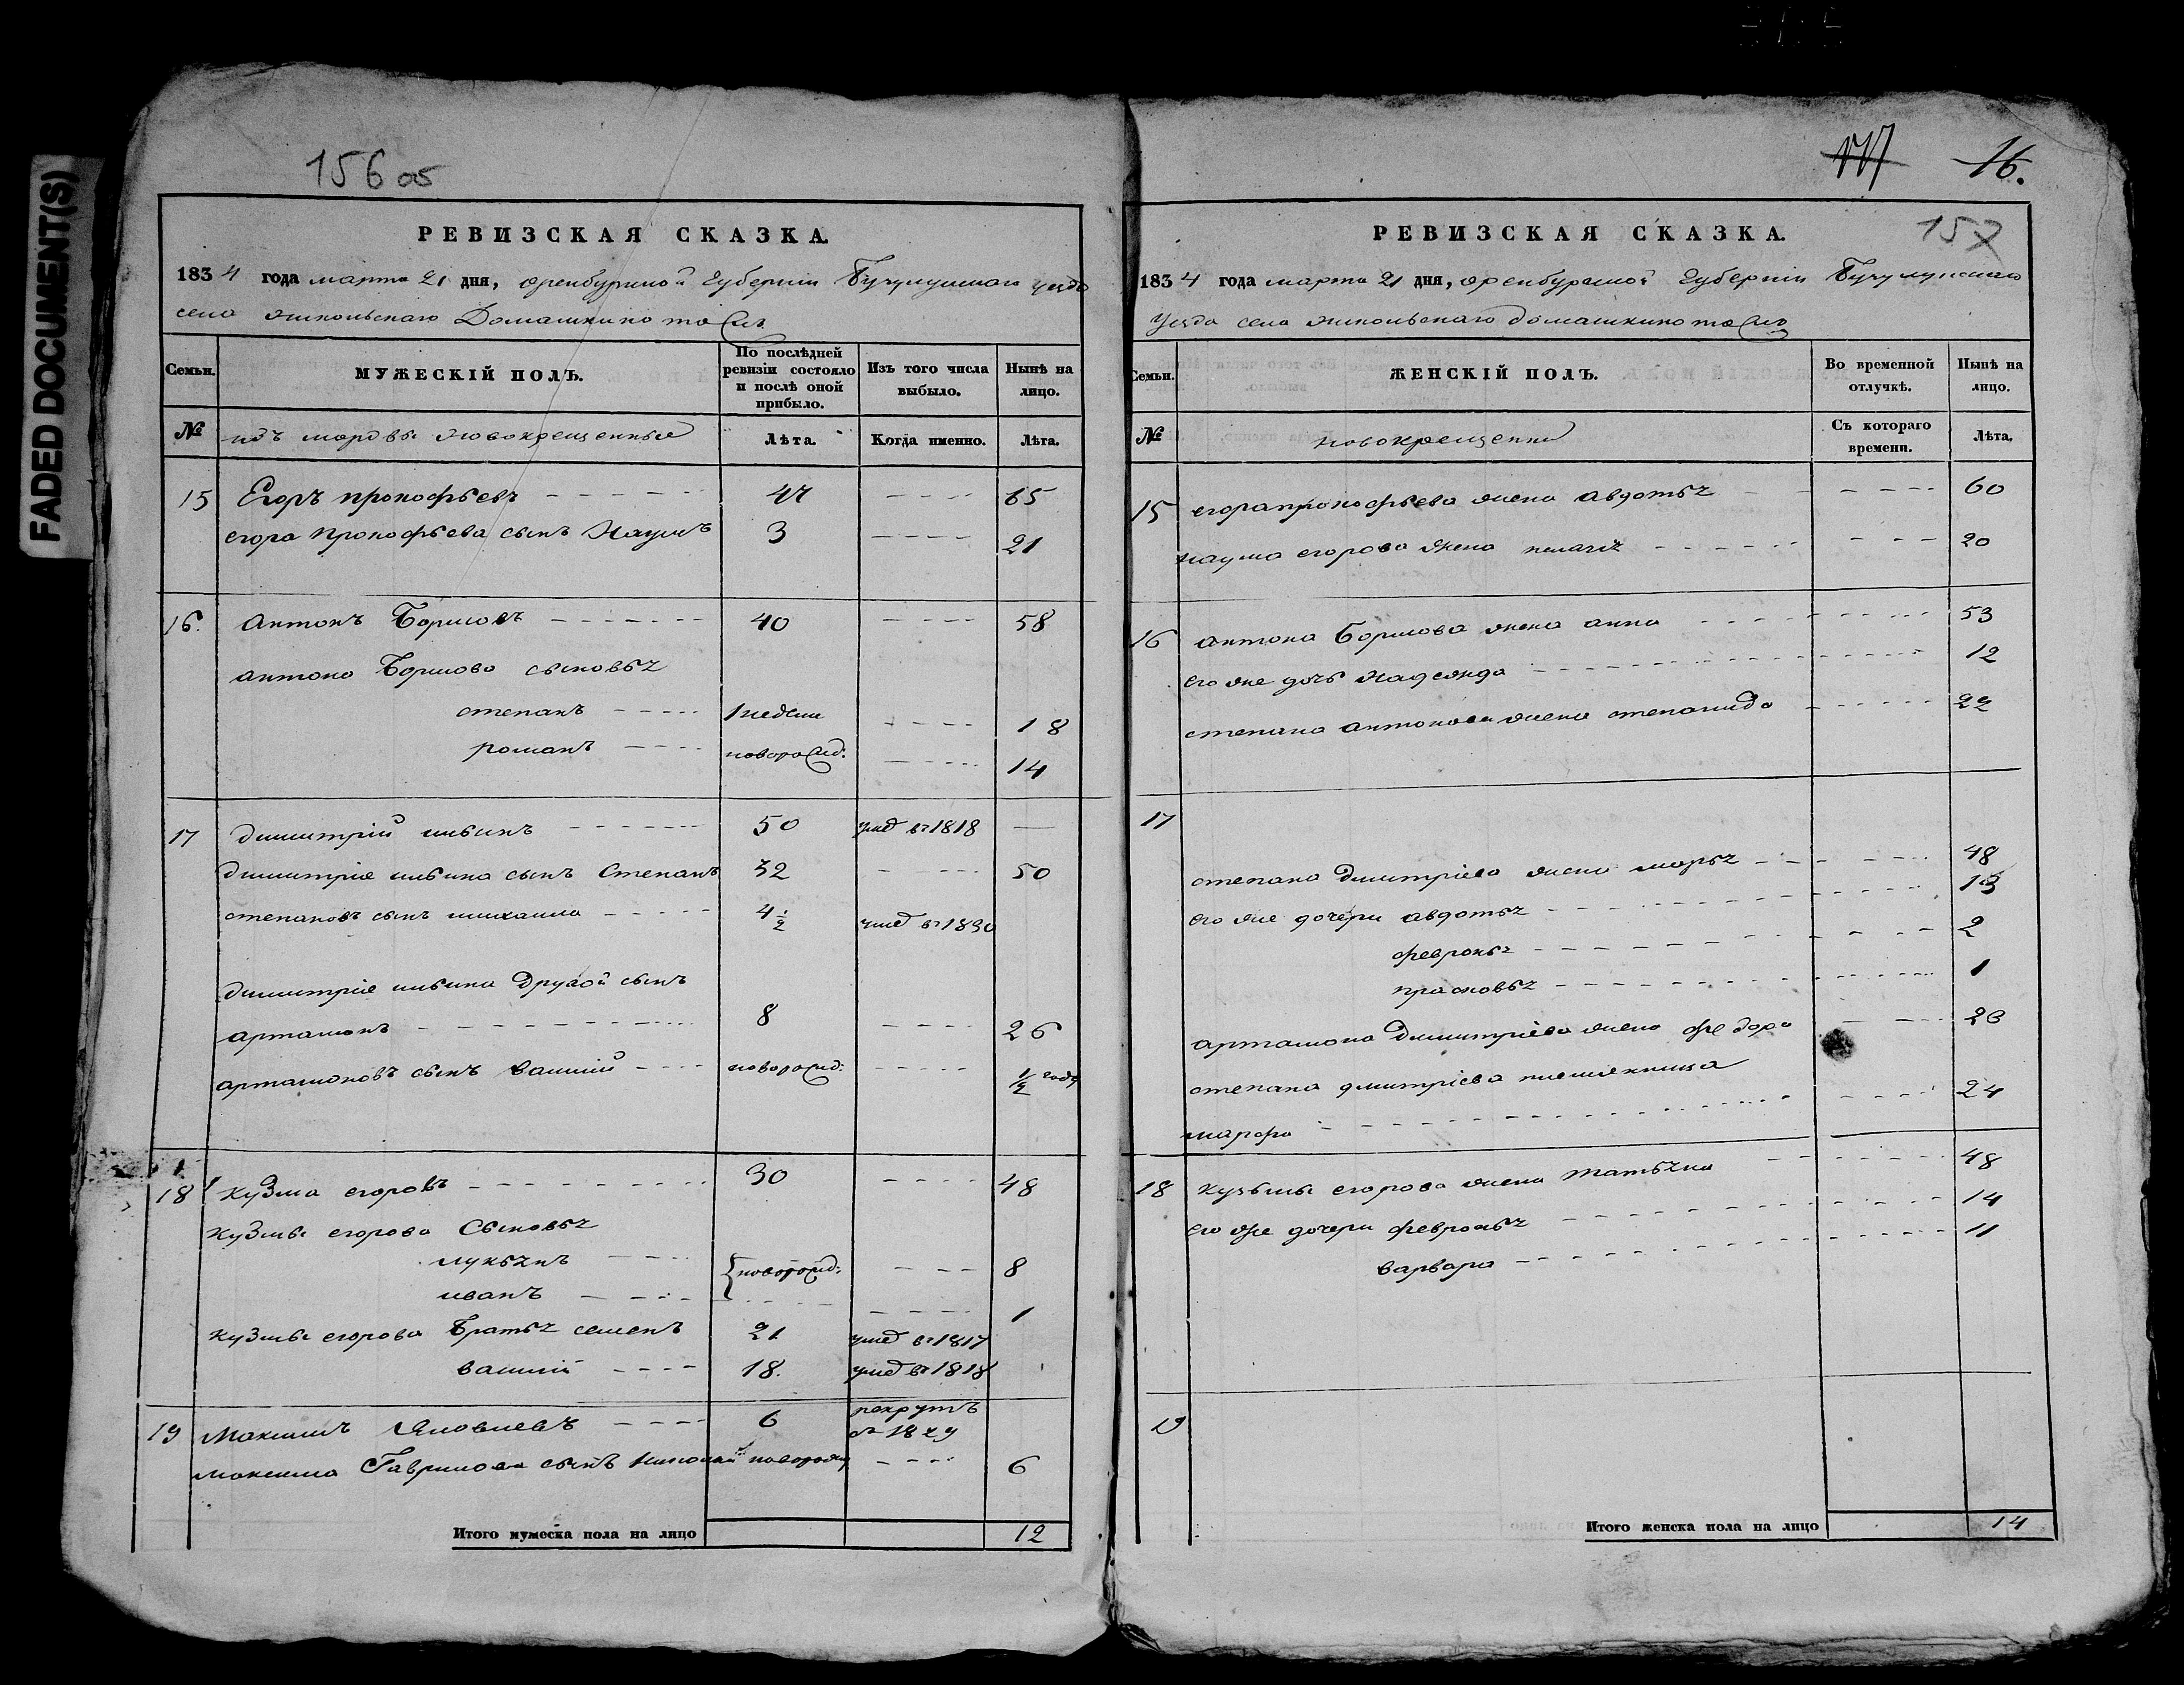 FADED DOCUMENT(S)
156 об
РЕВИЗСКАЯ СКАЗКА.
1834 года марта 21 дня, оренбурской губернии Бугульминскаго уезда
села Домашкино тожъ
Семьи.
МУЖЕСКІЙ ПОЛЪ.
По послѣдней ревизіи состояло и послѣ оной прибыло.
Изъ того числа выбыло.
Нынѣ на лицо.
№
изъ мордвы новокрещенные
Лѣта.
Когда именно.
Лѣта.
15 Егоръ прокофьевъ 47 65
егора прокофьева сынъ Наумъ 3 21
16. антонъ Борисовъ 40 58
антона Борисова сыновья
степанъ 1 недели 18
романъ новорожд: 14
17 димитрій ильинъ 50 умед въ 1818
димитрія ильина сынъ Степанъ 32 50
степановъ сынъ михаила 4 1/2 умед въ 1830
димитрія ильина другой сынъ
артамонъ 8 26
артамоновъ сынъ василий новорожд: 1/2 года
18 кузма егоровъ 30 48
кузмы егорова Сыновья
лукьянъ новорожд: 8
иванъ 1
кузмы егорова Братья семенъ 21 умед въ 1817
василий 18. умед въ 1818
19 Максимъ Яковлевъ 6 рекрутъ въ 1829
максима Гаврилова сынъ николай новорожд 6
Итого мужеска пола на лицо 12
16.
157
РЕВИЗСКАЯ СКАЗКА.
1834 года марта 21 дня, оренбурской губернии Бугульминскаго
уезда села домашкино тожъ
Семьи.
ЖЕНСКІЙ ПОЛЪ.
Во временной отлучкѣ.
Нынѣ на лицо.
№
новокрещенна
Съ котораго времени.
Лѣта.
15 егора прокофьева жена авдотья 60
наума егорова жена пелагия 20
16 антона Борисова жена анна 53
его же дочь 12
степана антонова жена степанида 22
17
степана димитріева жена марья 48
его же дочери авдотья 13
февронья 2
прасковья 1
артамона димитріева жена федора 26
степана дмитріева племянница
марфа 24
18 кузьмы егорова жена татьяна 48
его же дочери февронья 14
варвара 11
19
Итого женска пола на лицо 14